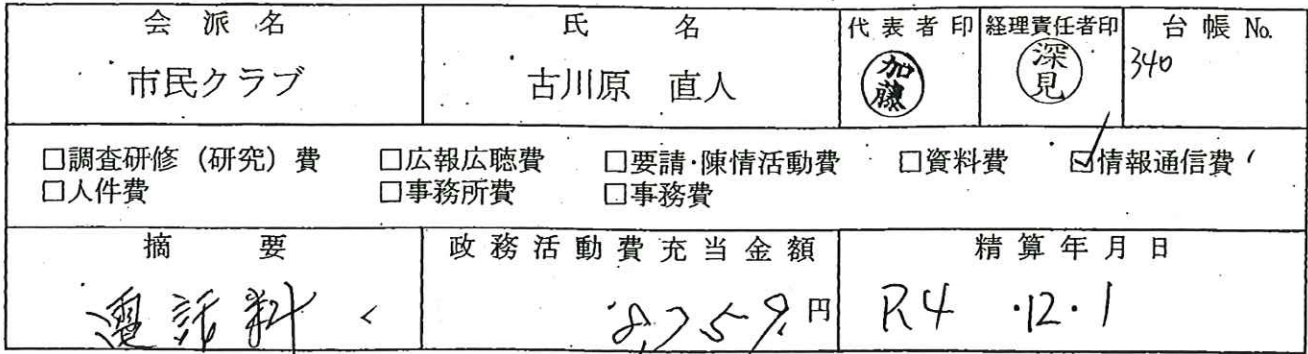 会派名 氏名 代表者印 経理責任者印 台帳No.
市民クラブ 古川原 直人 加藤 深見 340
□調査研修（研究）費 □広報広聴費 □要請・陳情活動費 □資料費 ☑情報通信費
□人件費 □事務所費 □事務費
摘要 政務活動費充当金額 精算年月日
電話料 8,759円 R4・12・1